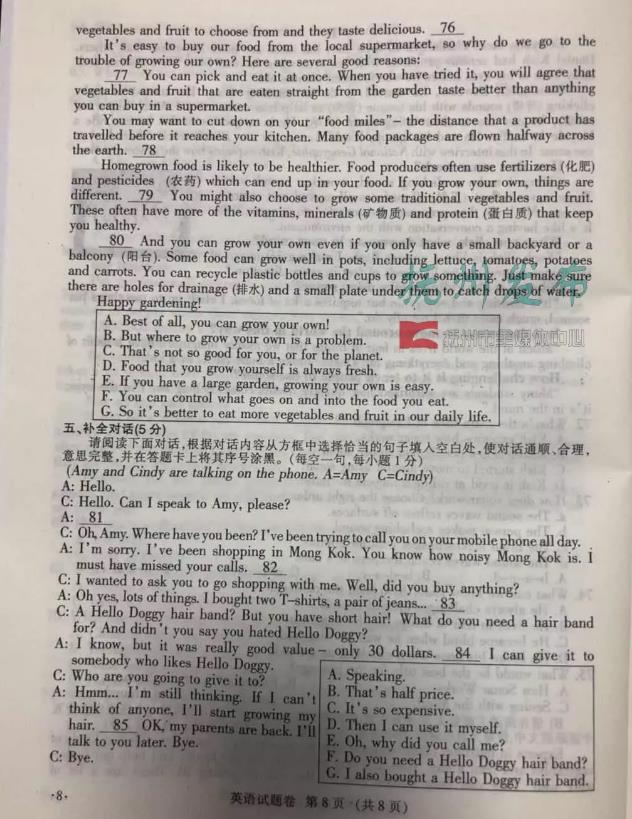 vegetables and fruit to choose from and they taste delicious. 76
It's easy to buy our food from the local supermarket, so why do we go to the
trouble of growing our own? Here are several good reasons:
77 You can pick and eat it at once. When you have tried it, you will agree that
vegetables and fruit that are eaten straight from the garden taste better than anything
you can buy in a supermarket.
You may want to cut down on your "food miles"– the distance that a product has
travelled before it reaches your kitchen. Many food packages are flown halfway across
the earth. 78
Homegrown food is likely to be healthier. Food producers often use fertilizers (化肥)
and pesticides (农药) which can end up in your food. If you grow your own, things are
different. 79 You might also choose to grow some traditional vegetables and fruit.
These often have more of the vitamins, minerals (矿物质) and protein (蛋白质) that keep
you healthy.
80 And you can grow your own even if you only have a small backyard or a
balcony (阳台). Some food can grow well in pots, including lettuce, tomatoes, potatoes
and carrots. You can recycle plastic bottles and cups to grow something. Just make sure
there are holes for drainage (排水) and a small plate under them to catch drops of water.
Happy gardening!
杭州发布
杭州市全媒体中心
A. Best of all, you can grow your own!
B. But where to grow your own is a problem.
C. That's not so good for you, or for the planet.
D. Food that you grow yourself is always fresh.
E. If you have a large garden, growing your own is easy.
F. You can control what goes on and into the food you eat.
G. So it's better to eat more vegetables and fruit in our daily life.
五、补全对话(5分)
请阅读下面对话,根据对话内容从方框中选择恰当的句子填入空白处,使对话通顺、合理,
意思完整,并在答题卡上将其序号涂黑。(每空一句,每小题1分)
(Amy and Cindy are talking on the phone. A=Amy C=Cindy)
A: Hello.
C: Hello. Can I speak to Amy, please?
A: 81
C: Oh, Amy. Where have you been? I've been trying to call you on your mobile phone all day.
A: I'm sorry. I've been shopping in Mong Kok. You know how noisy Mong Kok is. I
must have missed your calls. 82
C: I wanted to ask you to go shopping with me. Well, did you buy anything?
A: Oh yes, lots of things. I bought two T–shirts, a pair of jeans... 83
C: A Hello Doggy hair band? But you have short hair! What do you need a hair band
for? And didn't you say you hated Hello Doggy?
A: I know, but it was really good value – only 30 dollars. 84 I can give it to
somebody who likes Hello Doggy.
C: Who are you going to give it to?
A: Hmm... I'm still thinking. If I can't
think of anyone, I'll start growing my
hair. 85 OK, my parents are back. I'll
talk to you later. Bye.
C: Bye.
A. Speaking.
B. That's half price.
C. It's so expensive.
D. Then I can use it myself.
E. Oh, why did you call me?
F. Do you need a Hello Doggy hair band?
G. I also bought a Hello Doggy hair band.
·8·
英语试题卷 第8页 (共8页)